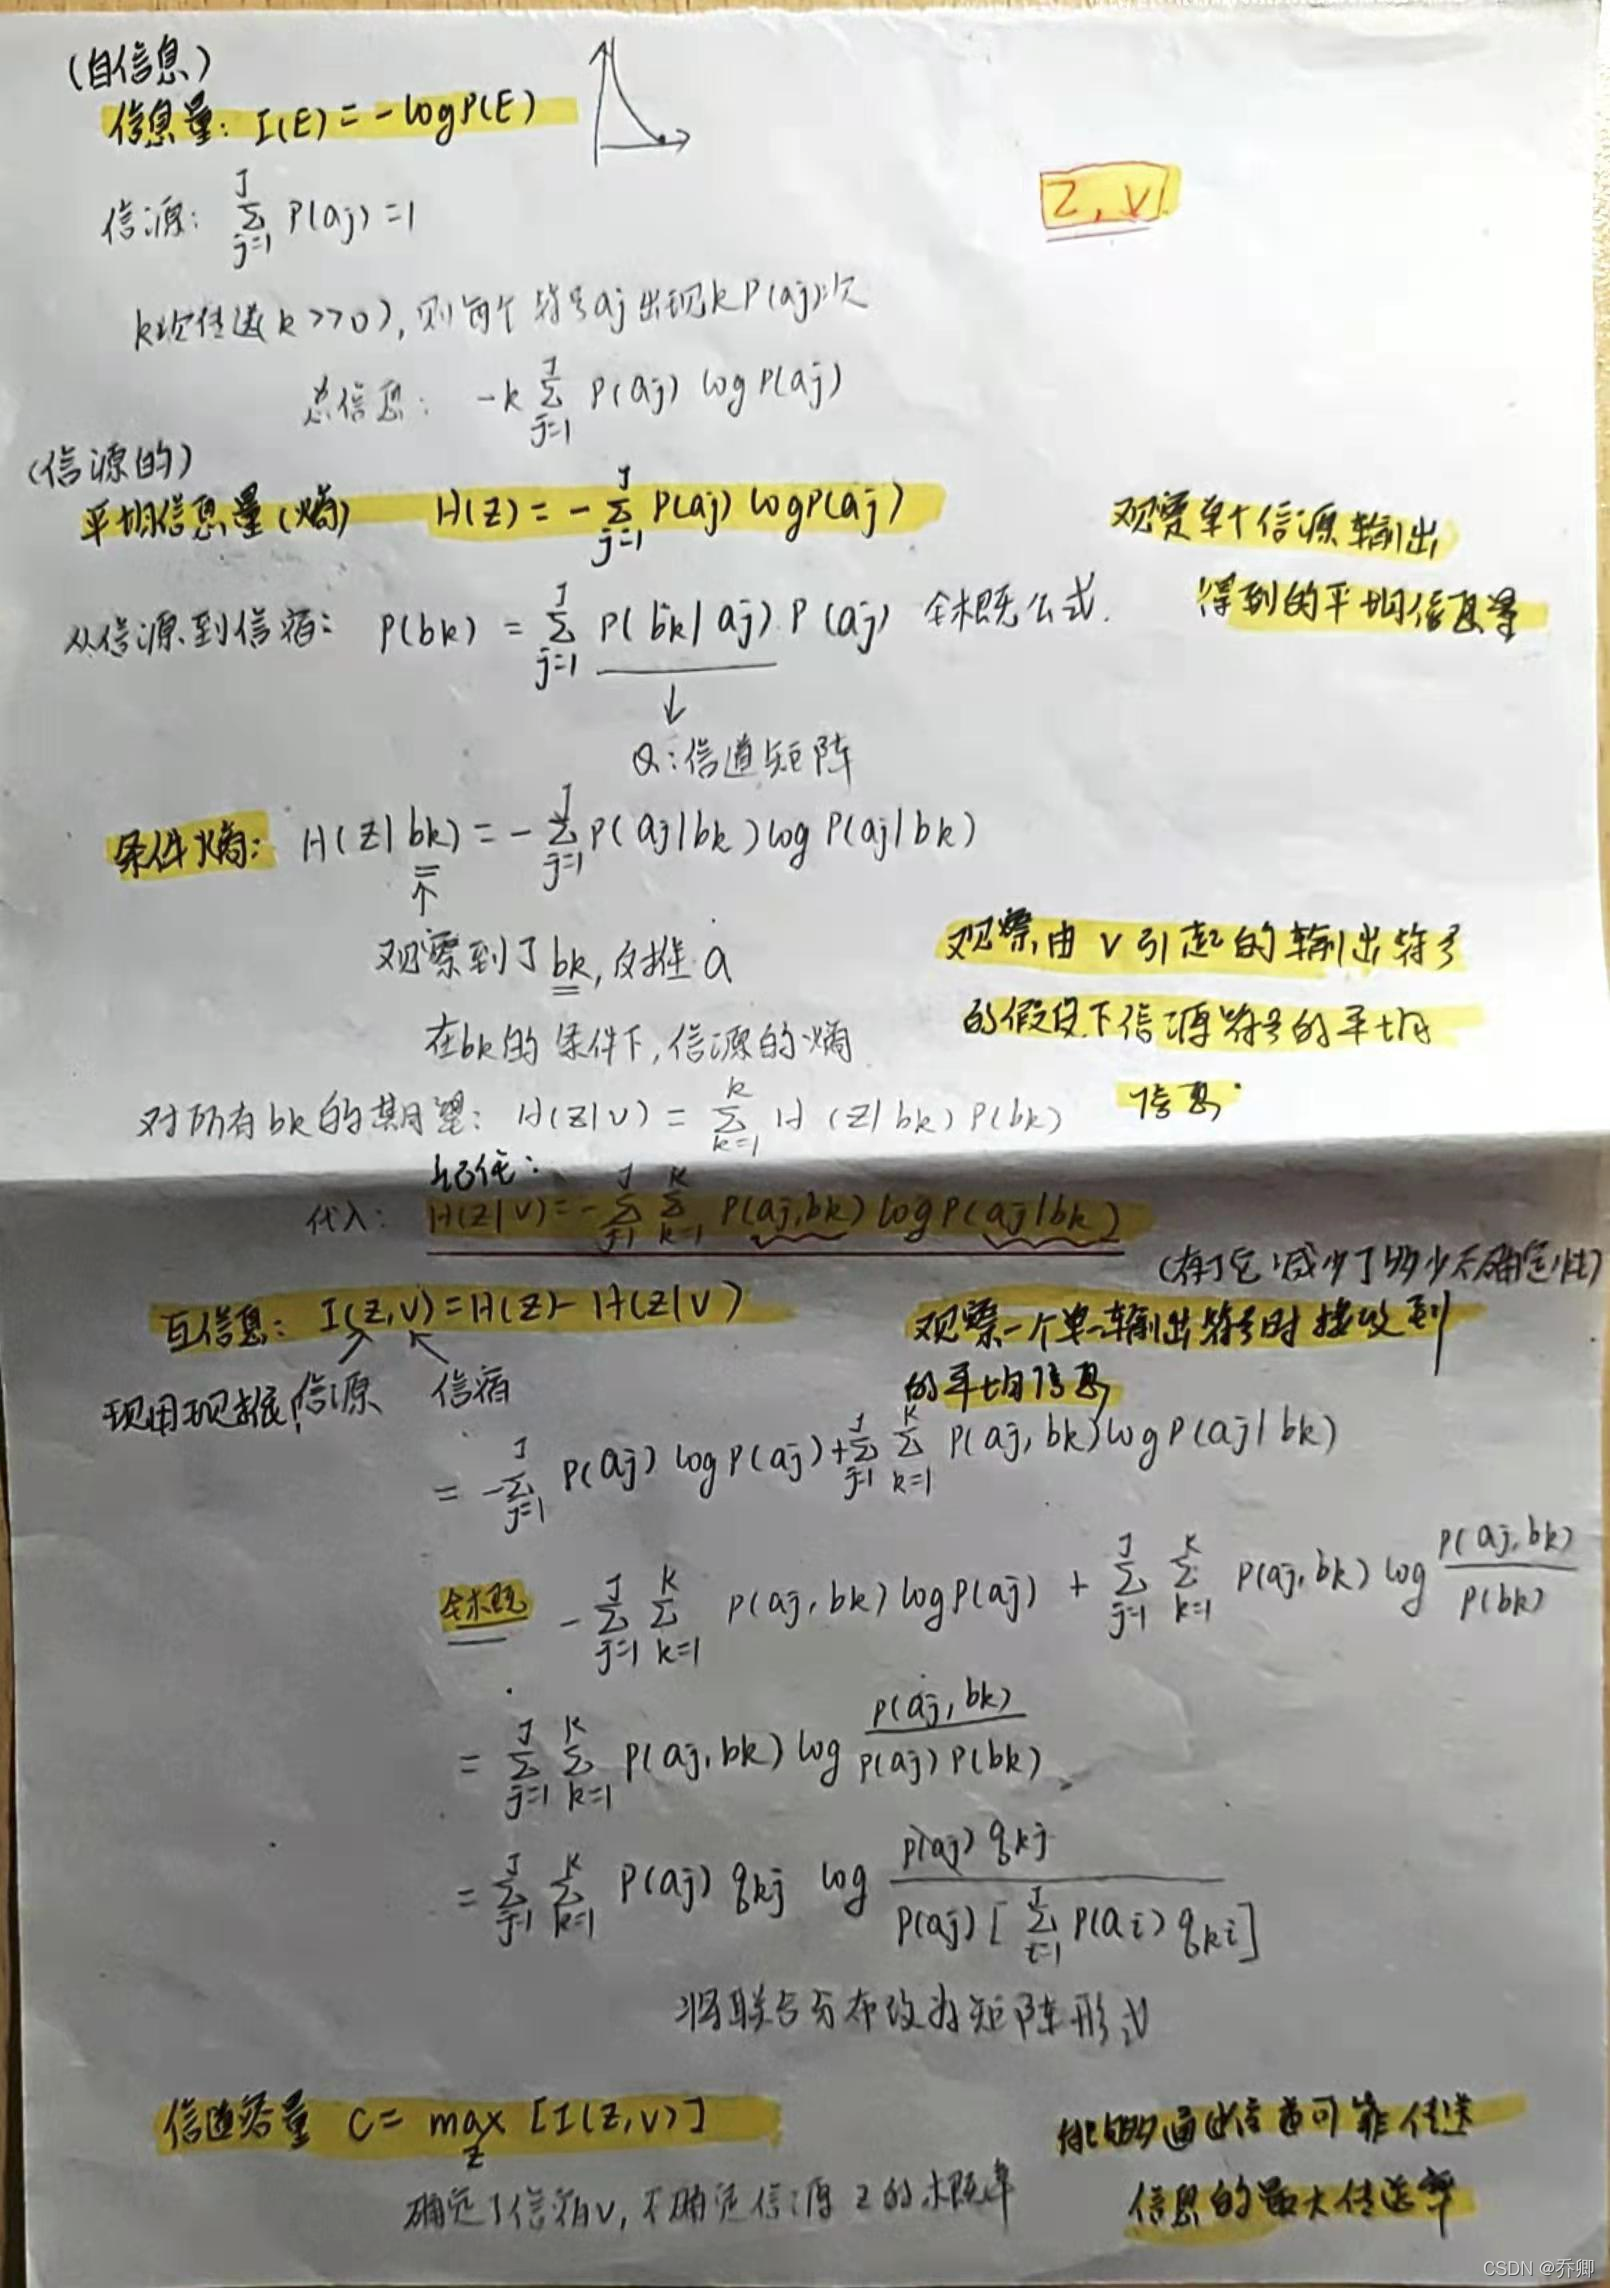 (自信息)
信息量: I(E) = -logP(E)
Z, V.
信源: J∑j=1 P(aj) = 1
k次传送(k>>0), 则每个符号aj出现kP(aj)次
总信息: -k J∑j=1 P(aj) logP(aj)
(信源的)
平均信息量(熵) H(Z) = - J∑j=1 P(aj) logP(aj)
观察单个信源输出
得到的平均信息量
从信源到信宿: P(bk) = J∑j=1 P(bk|aj) P(aj) 全概公式.
↓
Q:信道矩阵
条件熵: H(Z|bk) = - J∑j=1 P(aj|bk) log P(aj|bk)
↑
观察到了bk, 反推a
在bk的条件下, 信源的熵
观察由V引起的输出符号
的假设下信源符号的平均
信息
对所有bk的期望: H(Z|V) = K∑k=1 H(Z|bk) P(bk)
记住:
代入: H(Z|V) = - J∑j=1 K∑k=1 P(aj,bk) logP(aj|bk)
(有了它减少了多少不确定性)
互信息: I(Z,V) = H(Z) - H(Z|V)
观察一个单一输出符号时接收到
的平均信息
现用现推! 信源 信宿
= - J∑j=1 P(aj) logP(aj) + J∑j=1 K∑k=1 P(aj,bk) logP(aj|bk)
全概 = - J∑j=1 K∑k=1 P(aj,bk) logP(aj) + J∑j=1 K∑k=1 P(aj,bk) log P(aj,bk)/P(bk)
= J∑j=1 K∑k=1 P(aj,bk) log P(aj,bk)/P(aj)P(bk)
= J∑j=1 K∑k=1 P(aj) qkj log P(aj) qkj/P(aj)[J∑i=1 P(ai) qki]
将联合分布改为矩阵形式
信道容量 C = max Z [I(Z,V)]
能够通过信道可靠传送
信息的最大传送率
确定了信宿V, 不确定信源Z的概率
CSDN @乔卿